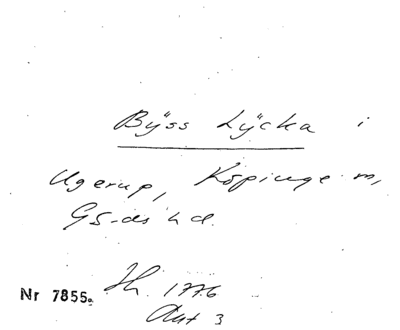 Bÿss Lÿcka i
Ugerup, Köpinge m,
GS-ds hd.
Nr 7855. Jh. 1776
Akt 3